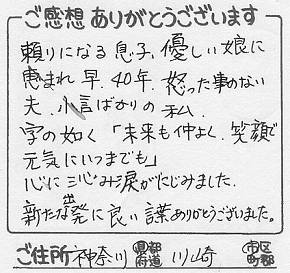 ご感想ありがとうございます
頼りになる息子、優しい娘に
恵まれ早、40年、怒った事のない
夫、小言ばかりの私、
字の如く「未来も仲よく、笑顔で
元気にいつまでも」
心に沁み涙がにじみました。
新たな出発に良い言葉ありがとうございました。
ご住所 神奈川 都道府県 川崎 市区町郡